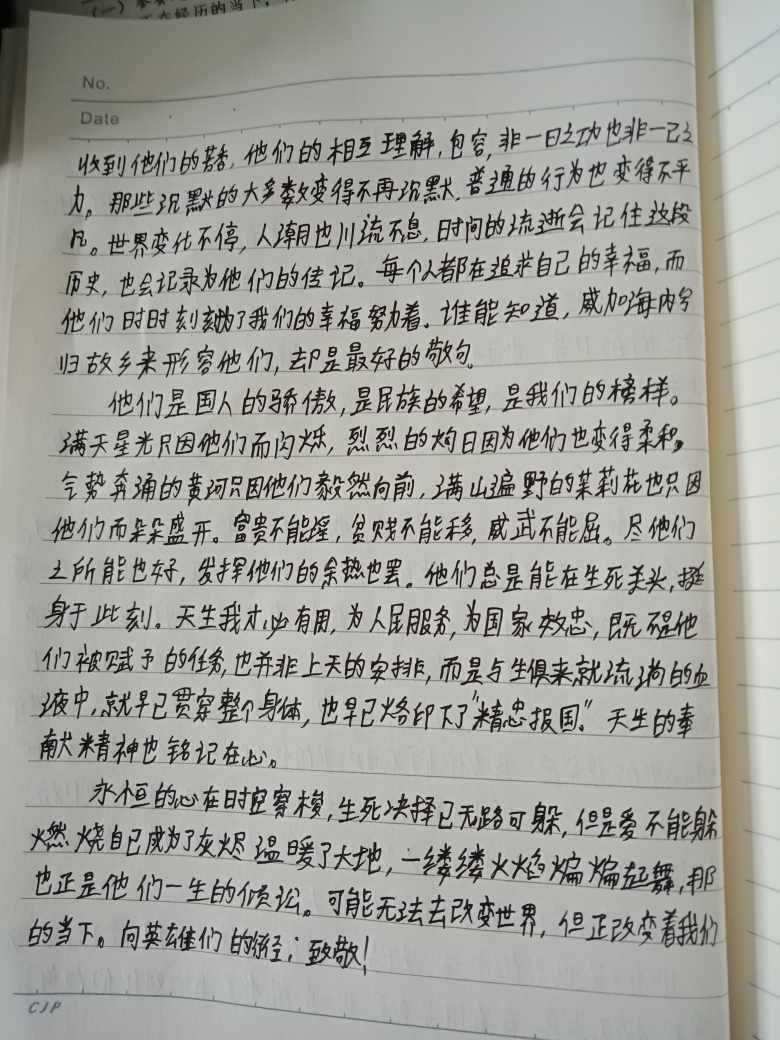 (一)
经历的当下,
No.
Date
收到他们的馨香,他们的相互理解,包容,非一日之功也非一己之
力。那些沉默的大多数变得不再沉默,普通的行为也变得不平
凡。世界变化不停,人潮也川流不息,时间的流逝会记住这段
历史,也会记录为他们的传记。每个人都在追求自己的幸福,而
他们时时刻刻为了我们的幸福努力着。谁能知道,威加海内兮
归故乡来形容他们,却是最好的敬句。
他们是国人的骄傲,是民族的希望,是我们的榜样。
满天星光只因他们而闪烁,烈烈的灼日因为他们也变得柔和。
气势奔涌的黄河只因他们毅然向前,满山遍野的茉莉花也只因
他们而朵朵盛开。富贵不能淫,贫贱不能移,威武不能屈。尽他们
之所能也好,发挥他们的余热也罢。他们总是能在生死关头,挺
身于此刻。天生我才必有用,为人民服务,为国家效忠,既不是他
们被赋予的任务,也并非上天的安排,而是与生俱来就流淌的血
液中,就早已贯穿整个身体,也早已烙印下了“精忠报国”。天生的奉
献精神也铭记在心。
永恒的心在时空穿梭,生死决择已无路可躲,但是爱不能躲
燃烧自己成为了灰烬温暖了大地,一缕缕火焰煸煸起舞,那
也正是他们一生的倾讼。可能无法去改变世界,但正改变着我们
的当下。向英雄们的;致敬!
CJP